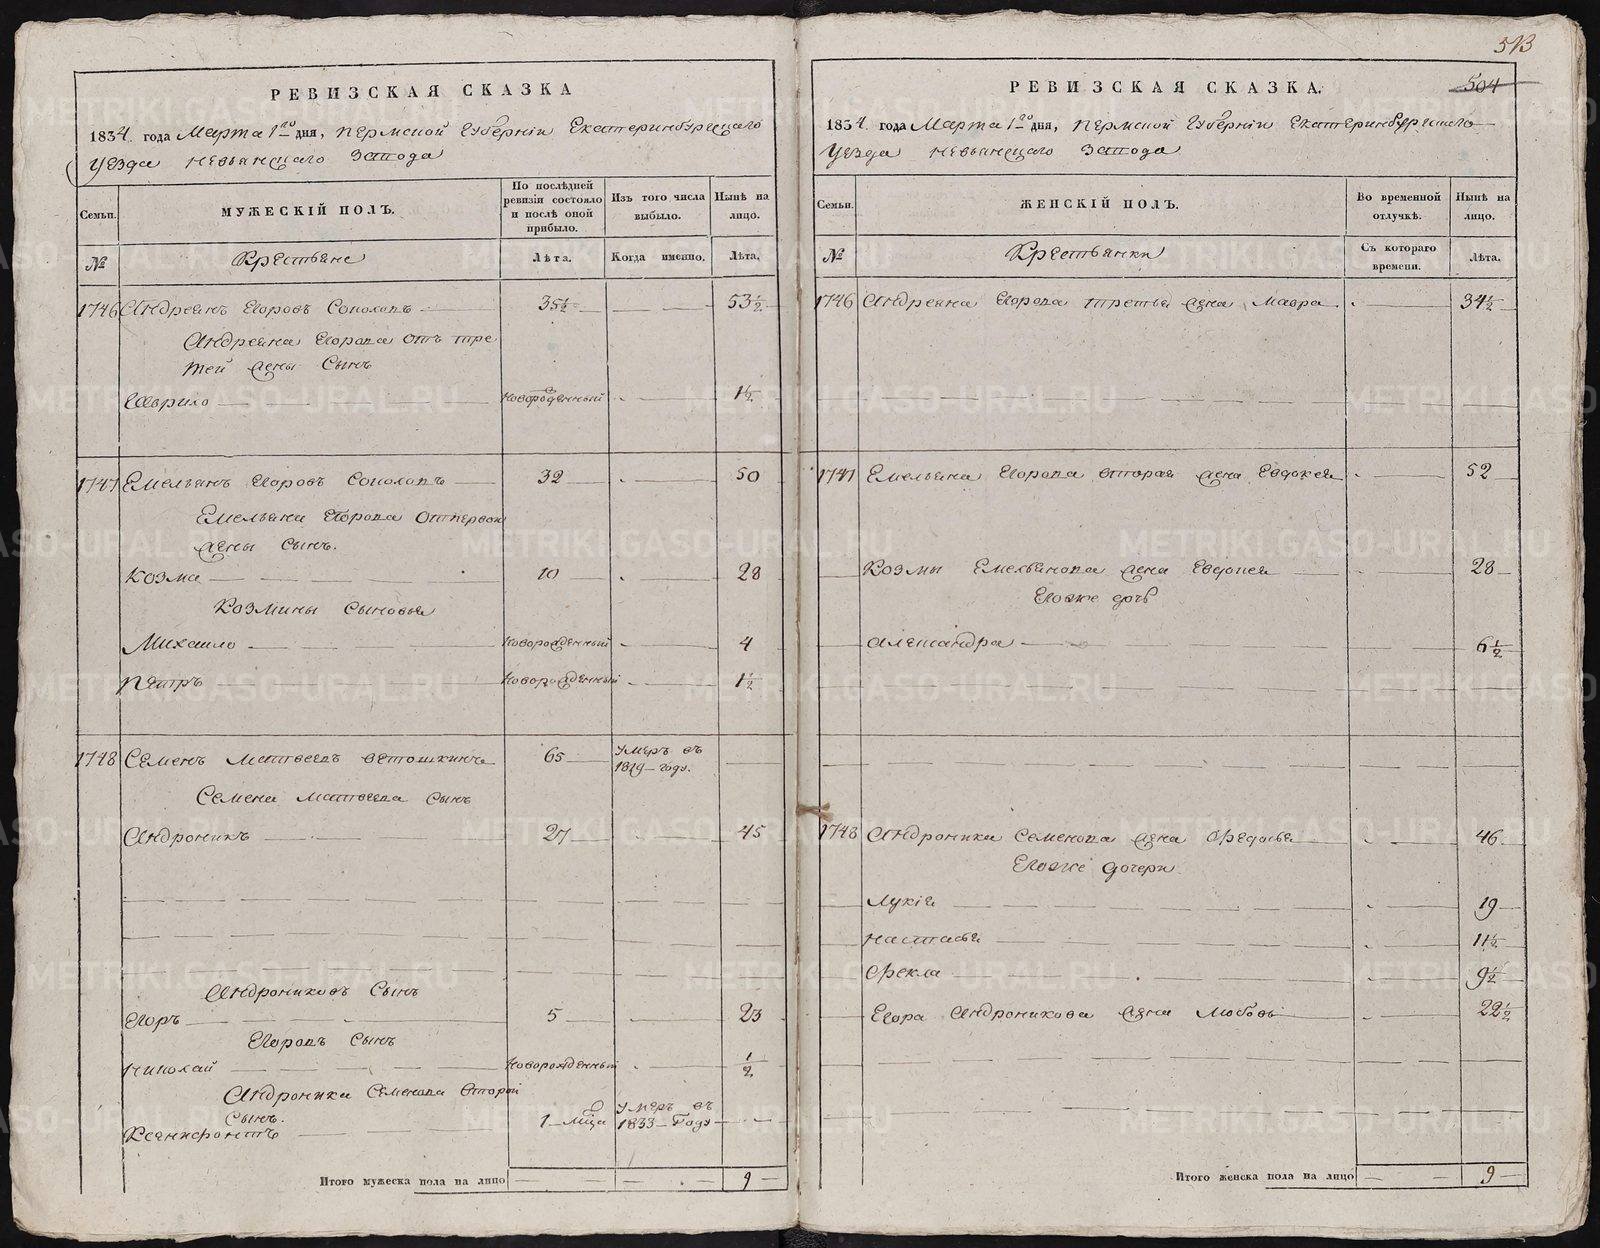 513
504
РЕВИЗСКАЯ СКАЗКА
1834. года Марта 1го дня, Пермской Губерніи Екатеринбургскаго
уезда Невьянскаго Завода
Семьи.
МУЖЕСКІЙ ПОЛЪ.
По послѣдней ревизіи состояло и послѣ оной прибыло.
Изъ того числа выбыло.
Нынѣ на лицо.
№
Крестьяне
Лѣта.
Когда именно.
Лѣта.
1746 Андреянъ Егоровъ Соколовъ 35½ 53½
Андреяна Егорова отъ тре
тей жены Сынъ
Гаврило новорожденный 1½
1747 Емельянъ Егоровъ Соколовъ 32 50
Емельяна Егорова отпервой
жены Сынъ.
Козма 10 28
Козмины Сыновья
Михаило новорожденный 4
Петръ новорожденный 1½
1748 Семенъ Матвеевъ Ветошкинъ 65 умеръ въ
1819 году.
Семена Матвеева Сынъ
Андроникъ 27 45
Андрониковъ Сынъ
Егоръ 5 23
Егоровъ Сынъ
Николай новорожденный ½
Андроника Семенова второй
Сынъ.
Ксенифонтъ 1 Мца умеръ въ
1833 Году
Итого мужеска пола на лицо 9
РЕВИЗСКАЯ СКАЗКА.
1834. года Марта 1го дня, Пермской Губерніи Екатеринбургскаго
уезда Невьянскаго Завода
Семьи.
ЖЕНСКІЙ ПОЛЪ.
Во временной отлучкѣ.
Нынѣ на лицо.
№
Крестьянки
Съ котораго времени.
Лѣта.
1746 Андреяна Егорова третья жена Мавра 34½
1747 Емельяна Егорова вторая жена Евдокея 52
Козмы Емельянова жена Евдокея 28
Егоже дочь
Александра 6½
1748 Андроника Семенова жена Федосья 46
Егоже дочери
Лукія 19
Настасья 11½
Фекла 9½
Егора Андроникова жена Любовь 22½
Итого женска пола на лицо 9
METRIKI.GASO-URAL.RU